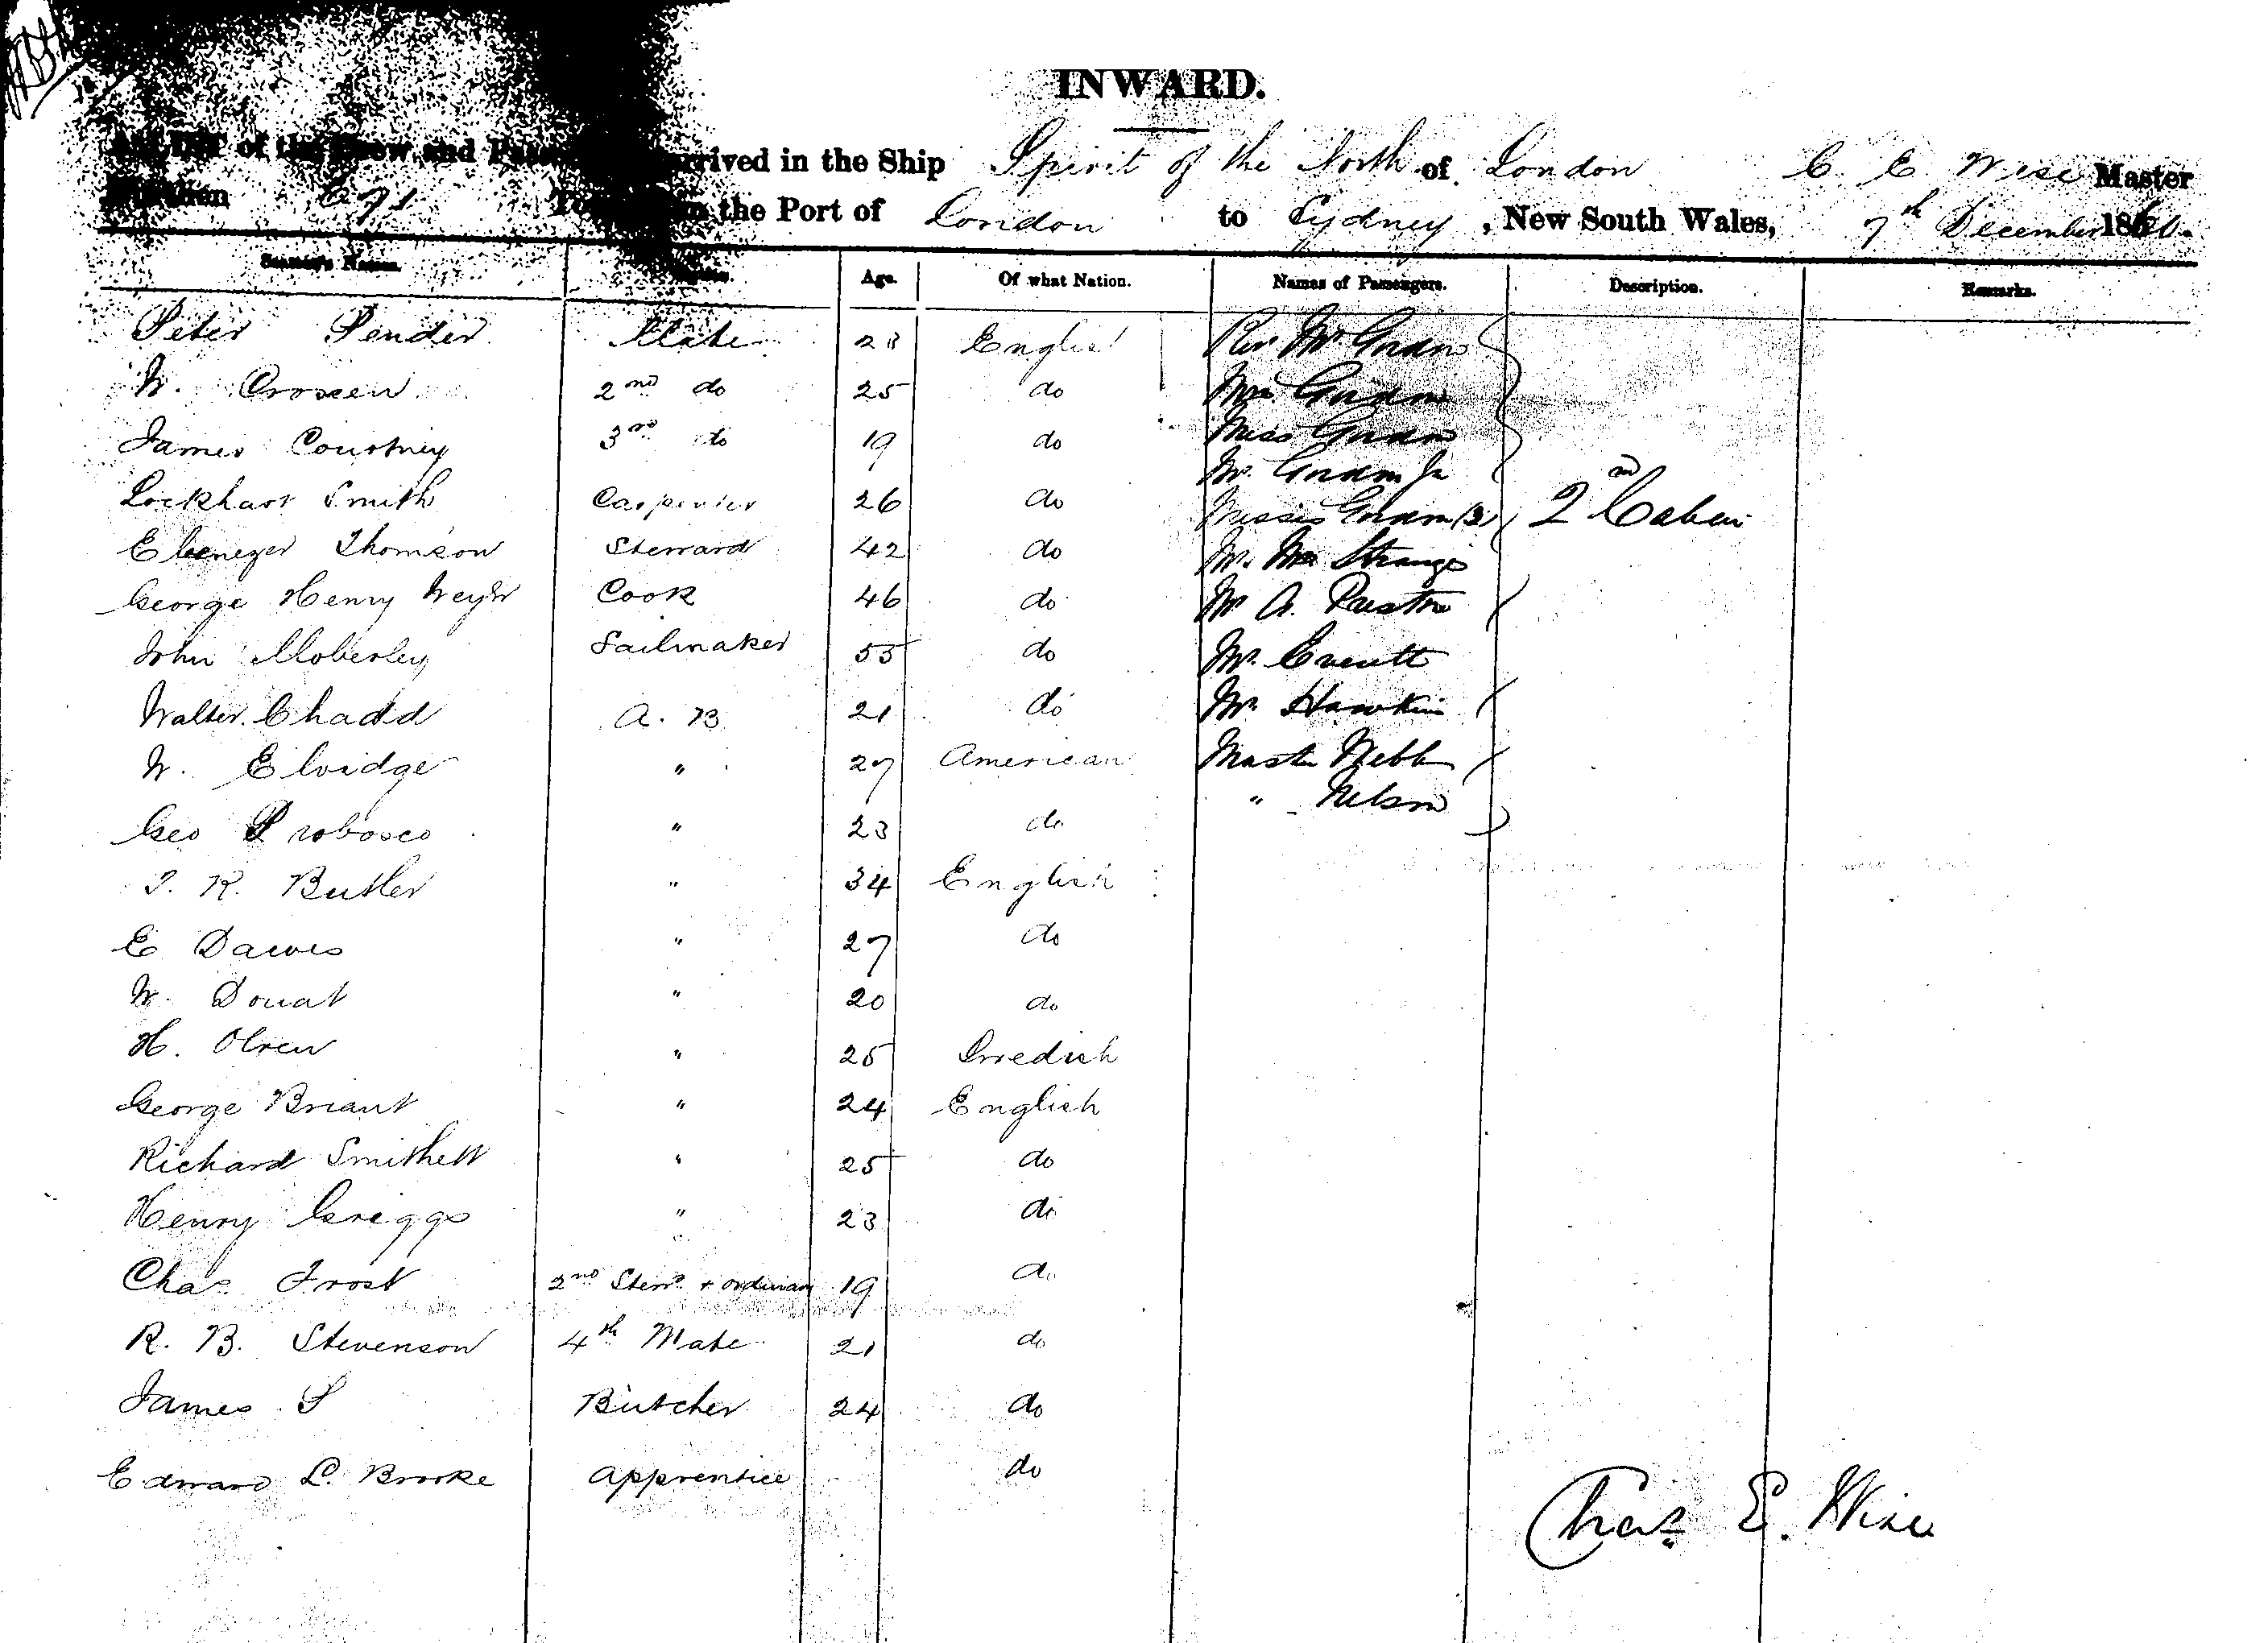 INWARD.
A LIST of the Crew and arrived in the Ship Spirit of the North of London C. E. Wise Master
the Port of London to Sydney, New South Wales, 7th December 186
Seamen's Names. Age. Of what Nation. Names of Passengers. Description. Remarks.
Peter Pender Mate 28 English Rev Mr
W. 2nd do 25 do Mrs
James Courtney 3rd do 19 do Miss
Mr. Jr
Lockhart Smith Carpenter 26 do Misses (3) 2nd Cabin
Ebenezer Thomson Steward 42 do Mr. Mrs Strange
George Henry Cook 46 do Mr A. Preston
John Moberley Sailmaker 55 do Mr. Everett
Walter Chadd A. B 21 do Mr. Hawkins
W. Elvidge " 27 American Master Webb
" Nelson
Geo Probosco " 23 do
T. R. Butler " 34 English
E Dawes " 27 do
W. Douat " 20 do
H. Olsen " 25 Swedish
George Briant " 24 English
Richard Smithett " 25 do
Henry Griggs " 23 do
Chas Frost 2nd Stewd + ordinary 19 do
R. B. Stevenson 4th Mate 21 do
James S Butcher 24 do
Edward L. Brooke Apprentice do
Chas E. Wise